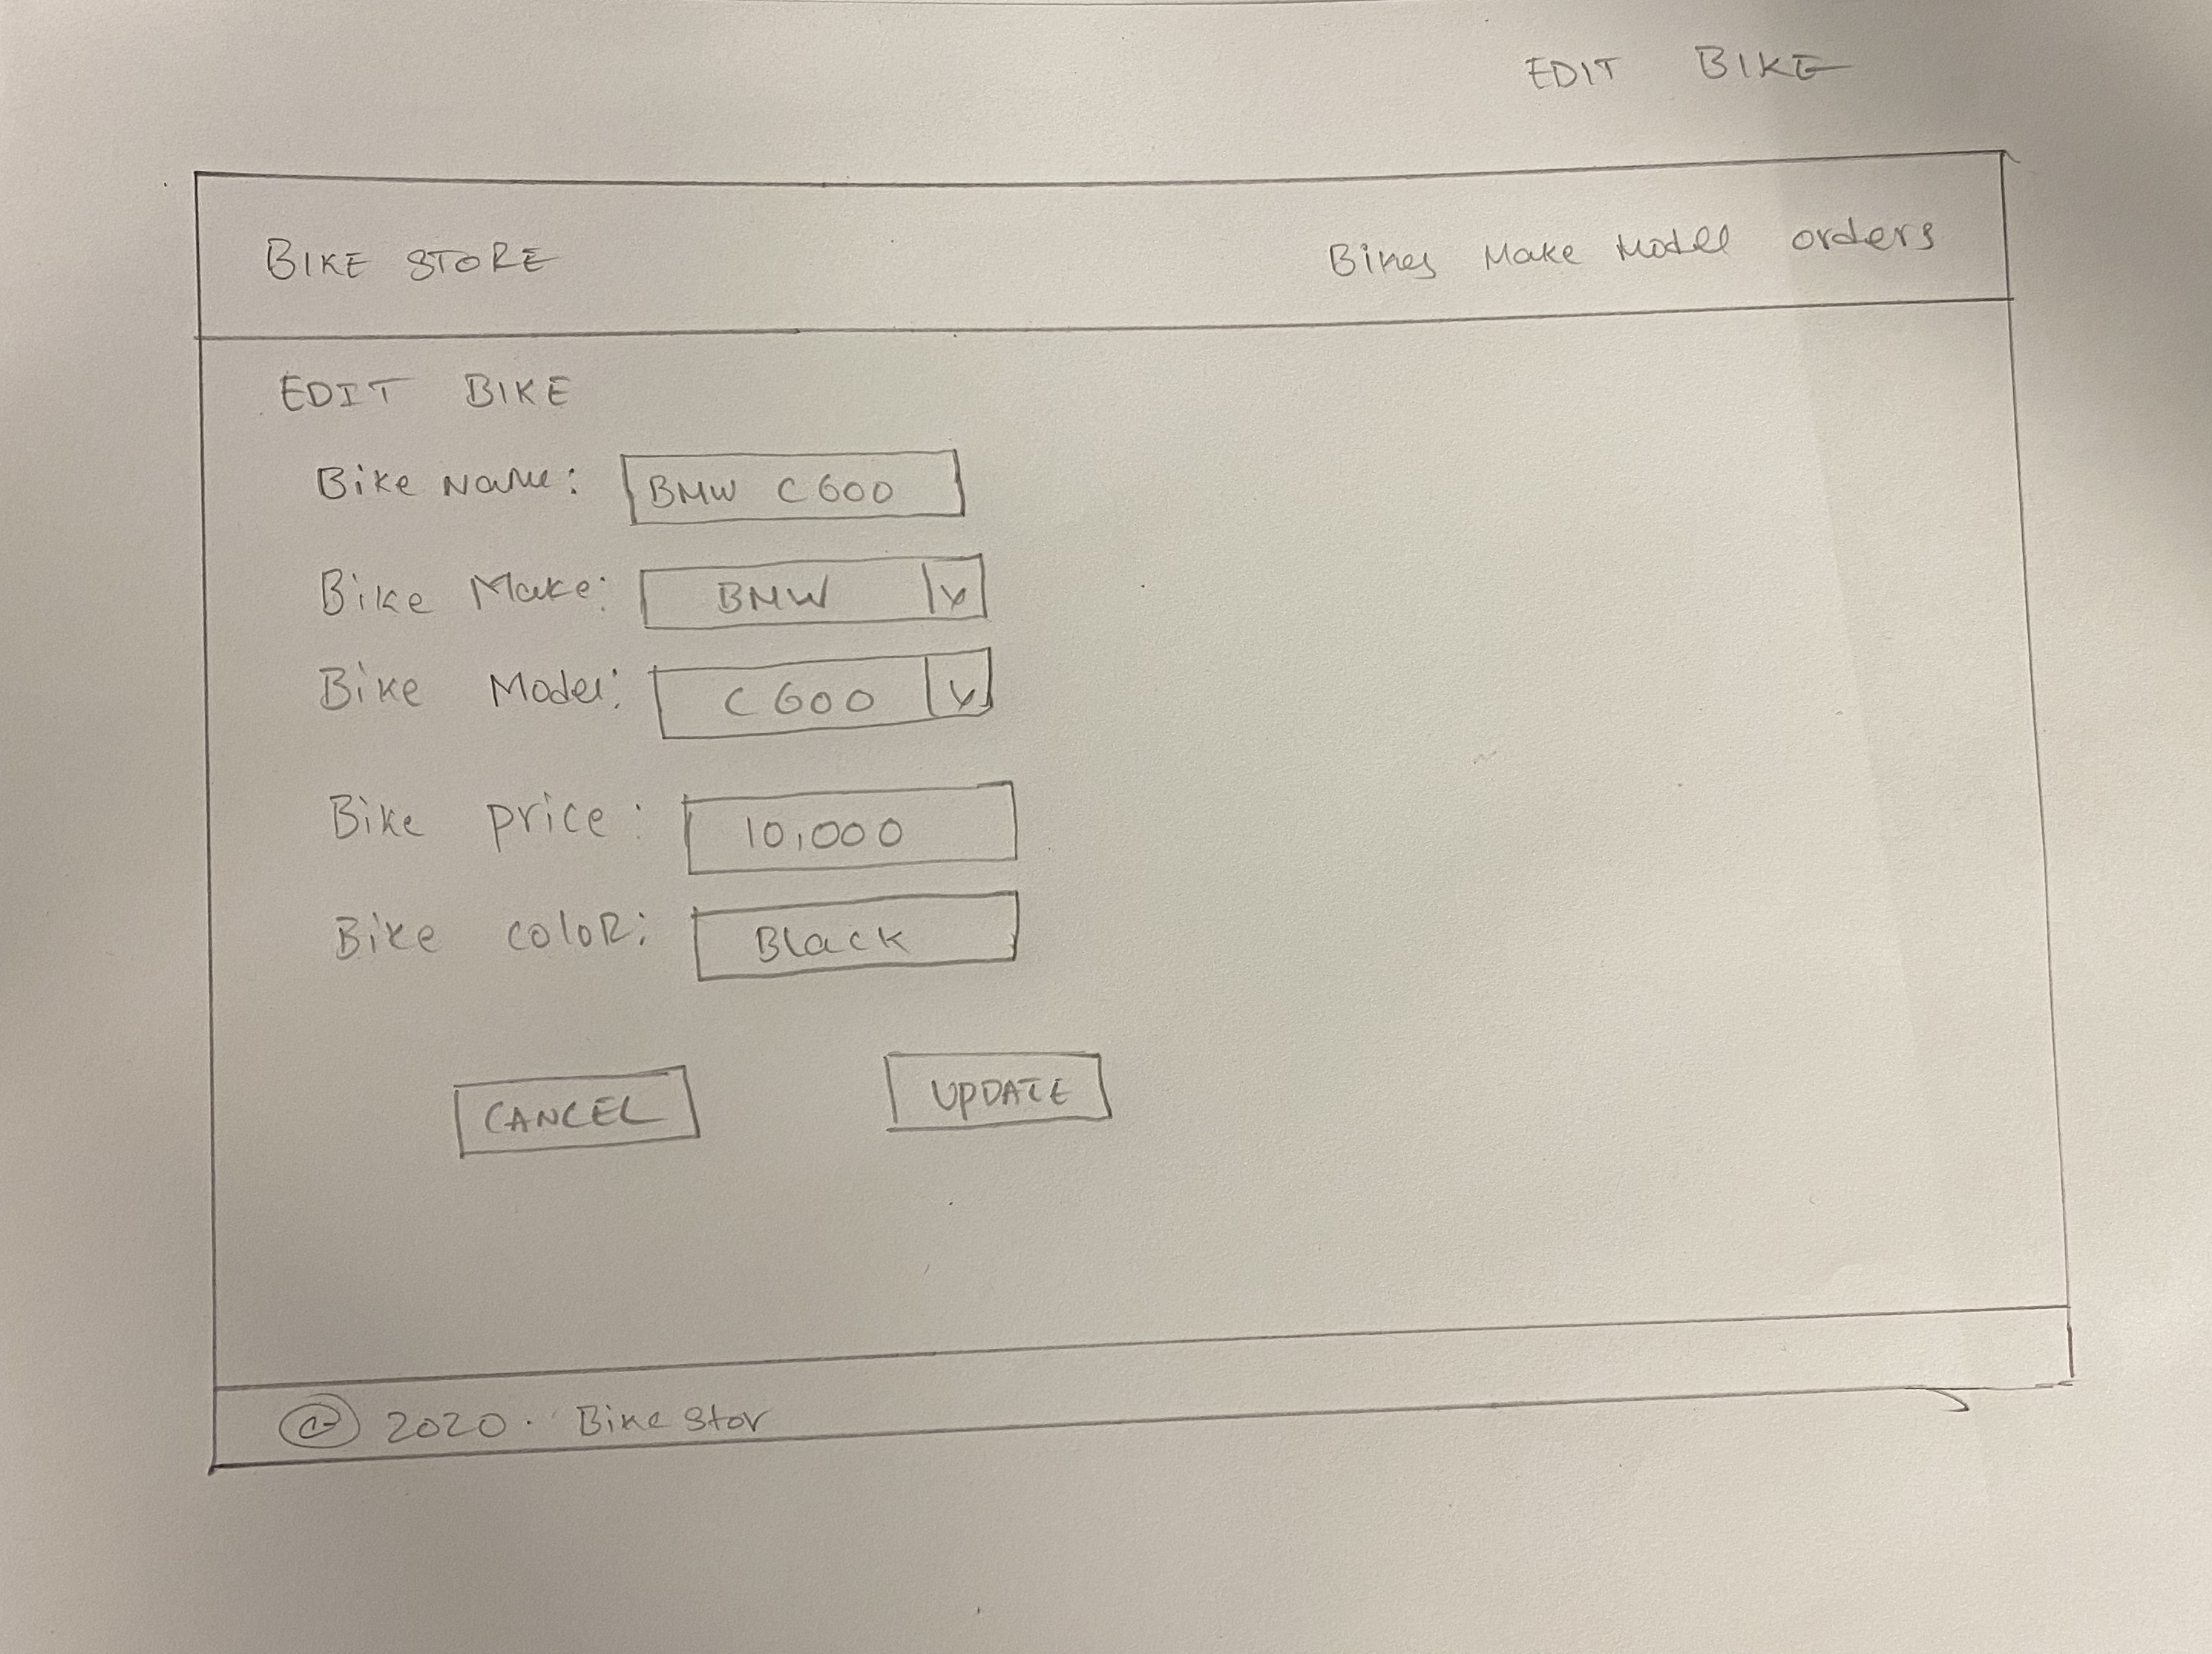 EDIT BIKE
BIKE STORE Bikes Make Model orders
EDIT BIKE
Bike Name: BMW C600
Bike Make: BMW
Bike Model: C600
Bike price: 10,000
Bike coloR: Black
CANCEL UPDATE
© 2020. Bike Stor